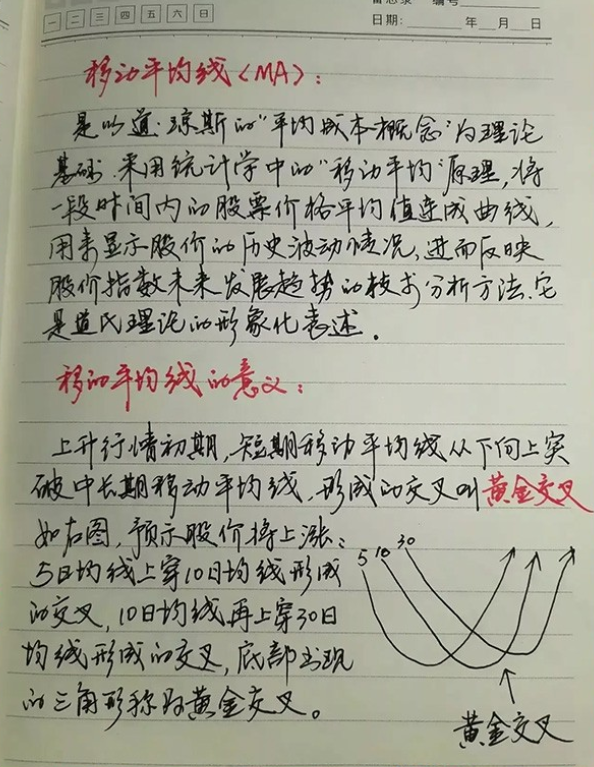 备忘录 编号
一 二 三 四 五 六 日
日期: 年 月 日
移动平均线〈MA〉:
是以道·琼斯的"平均成本概念"为理论
基础.采用统计学中的"移动平均"原理,将
一段时间内的股票价格平均值连成曲线,
用来显示股价的历史波动情况,进而反映
股价指数未来发展趋势的技术分析方法.它
是道氏理论的形象化表述.
移动平均线的意义:
上升行情初期,短期移动平均线从下向上突
破中长期移动平均线.形成的交叉叫黄金交叉
如右图,预示股价将上涨:
5日均线上穿10日均线形成
的交叉,10日均线再上穿30日
均线形成的交叉,底部出现
的三角形称为黄金交叉。
5 10 30
黄金交叉